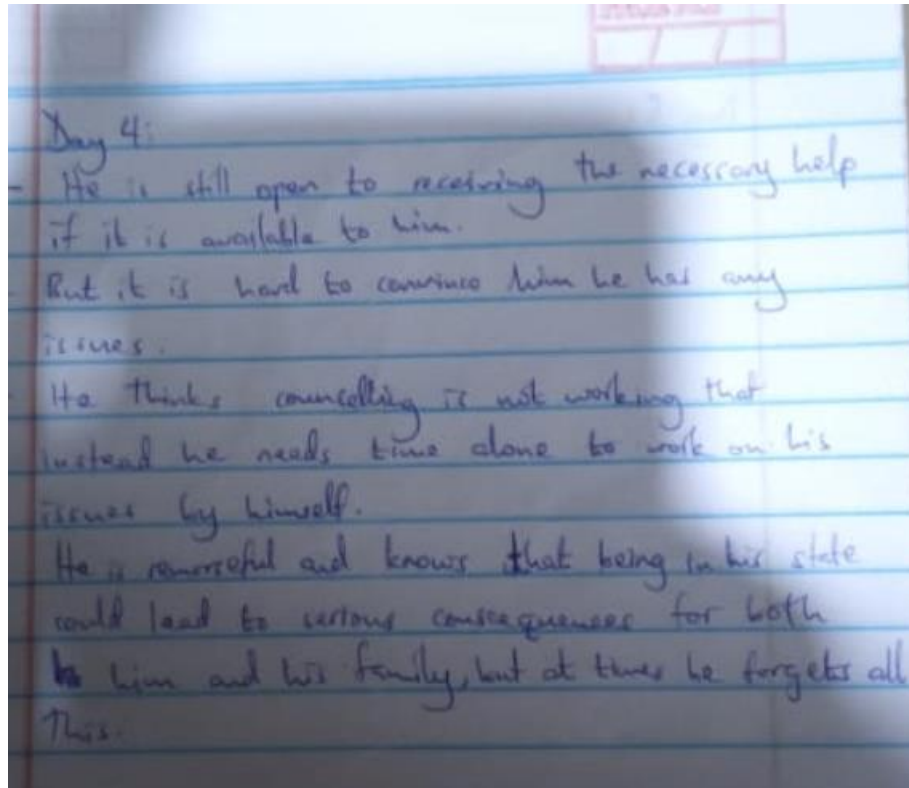 Day 4:
- He is still open to receiving the necessary help
if it is available to him.
- But it is hard to convince him he has any
issues.
He thinks councelling is not working that
instead he needs time alone to work on his
issues by himself.
He is remorseful and knows that being in his state
could lead to serious consequences for both
him and his family, but at times he forgets all
This.